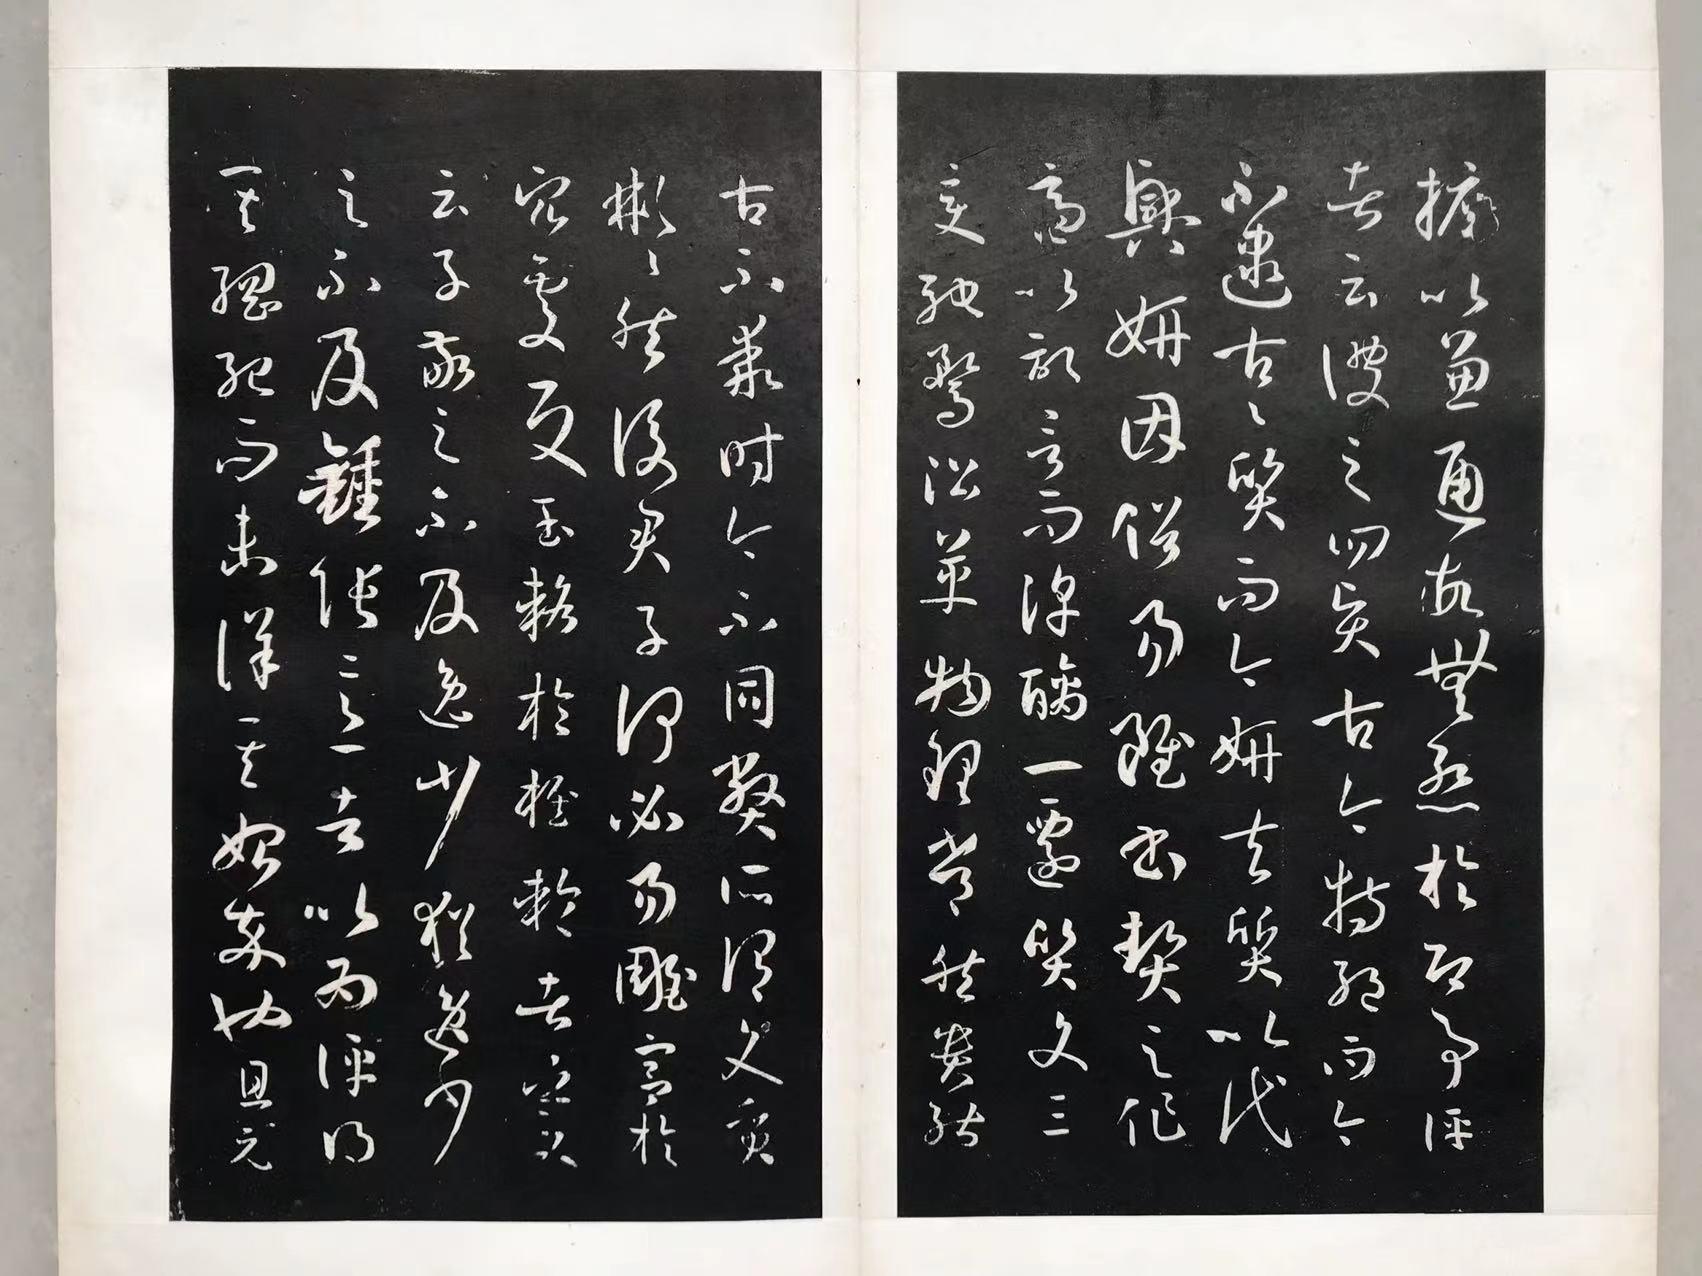 擴以兼通故無慙於即事評
者云彼之四賢古今特絕而今
不逮古々質而今妍夫質以代
興妍因俗易雖書契之作
適以記言而淳醨一遷質文三
變馳騖沿革物理常然貴能
古不乖時今不同弊所謂文質
彬々然後君子何必易雕宮於
穴處反玉輅於椎輪者乎又
云子敬之不及逸少猶逸少
之不及鍾張意者以為評得
其綱紀而未詳其始卒也且元